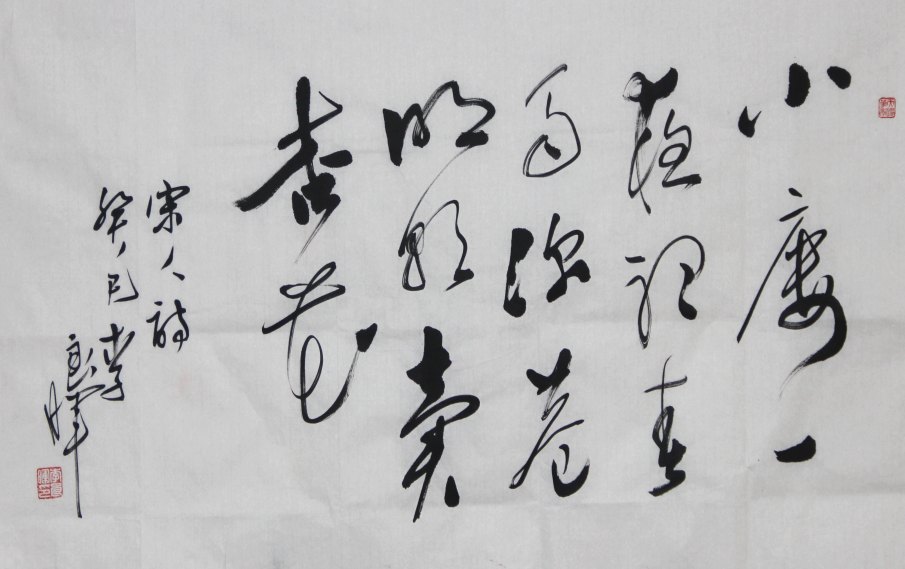 小楼一
夜听春
雨深巷
明朝卖
杏花
宋人诗
癸巳李良晖